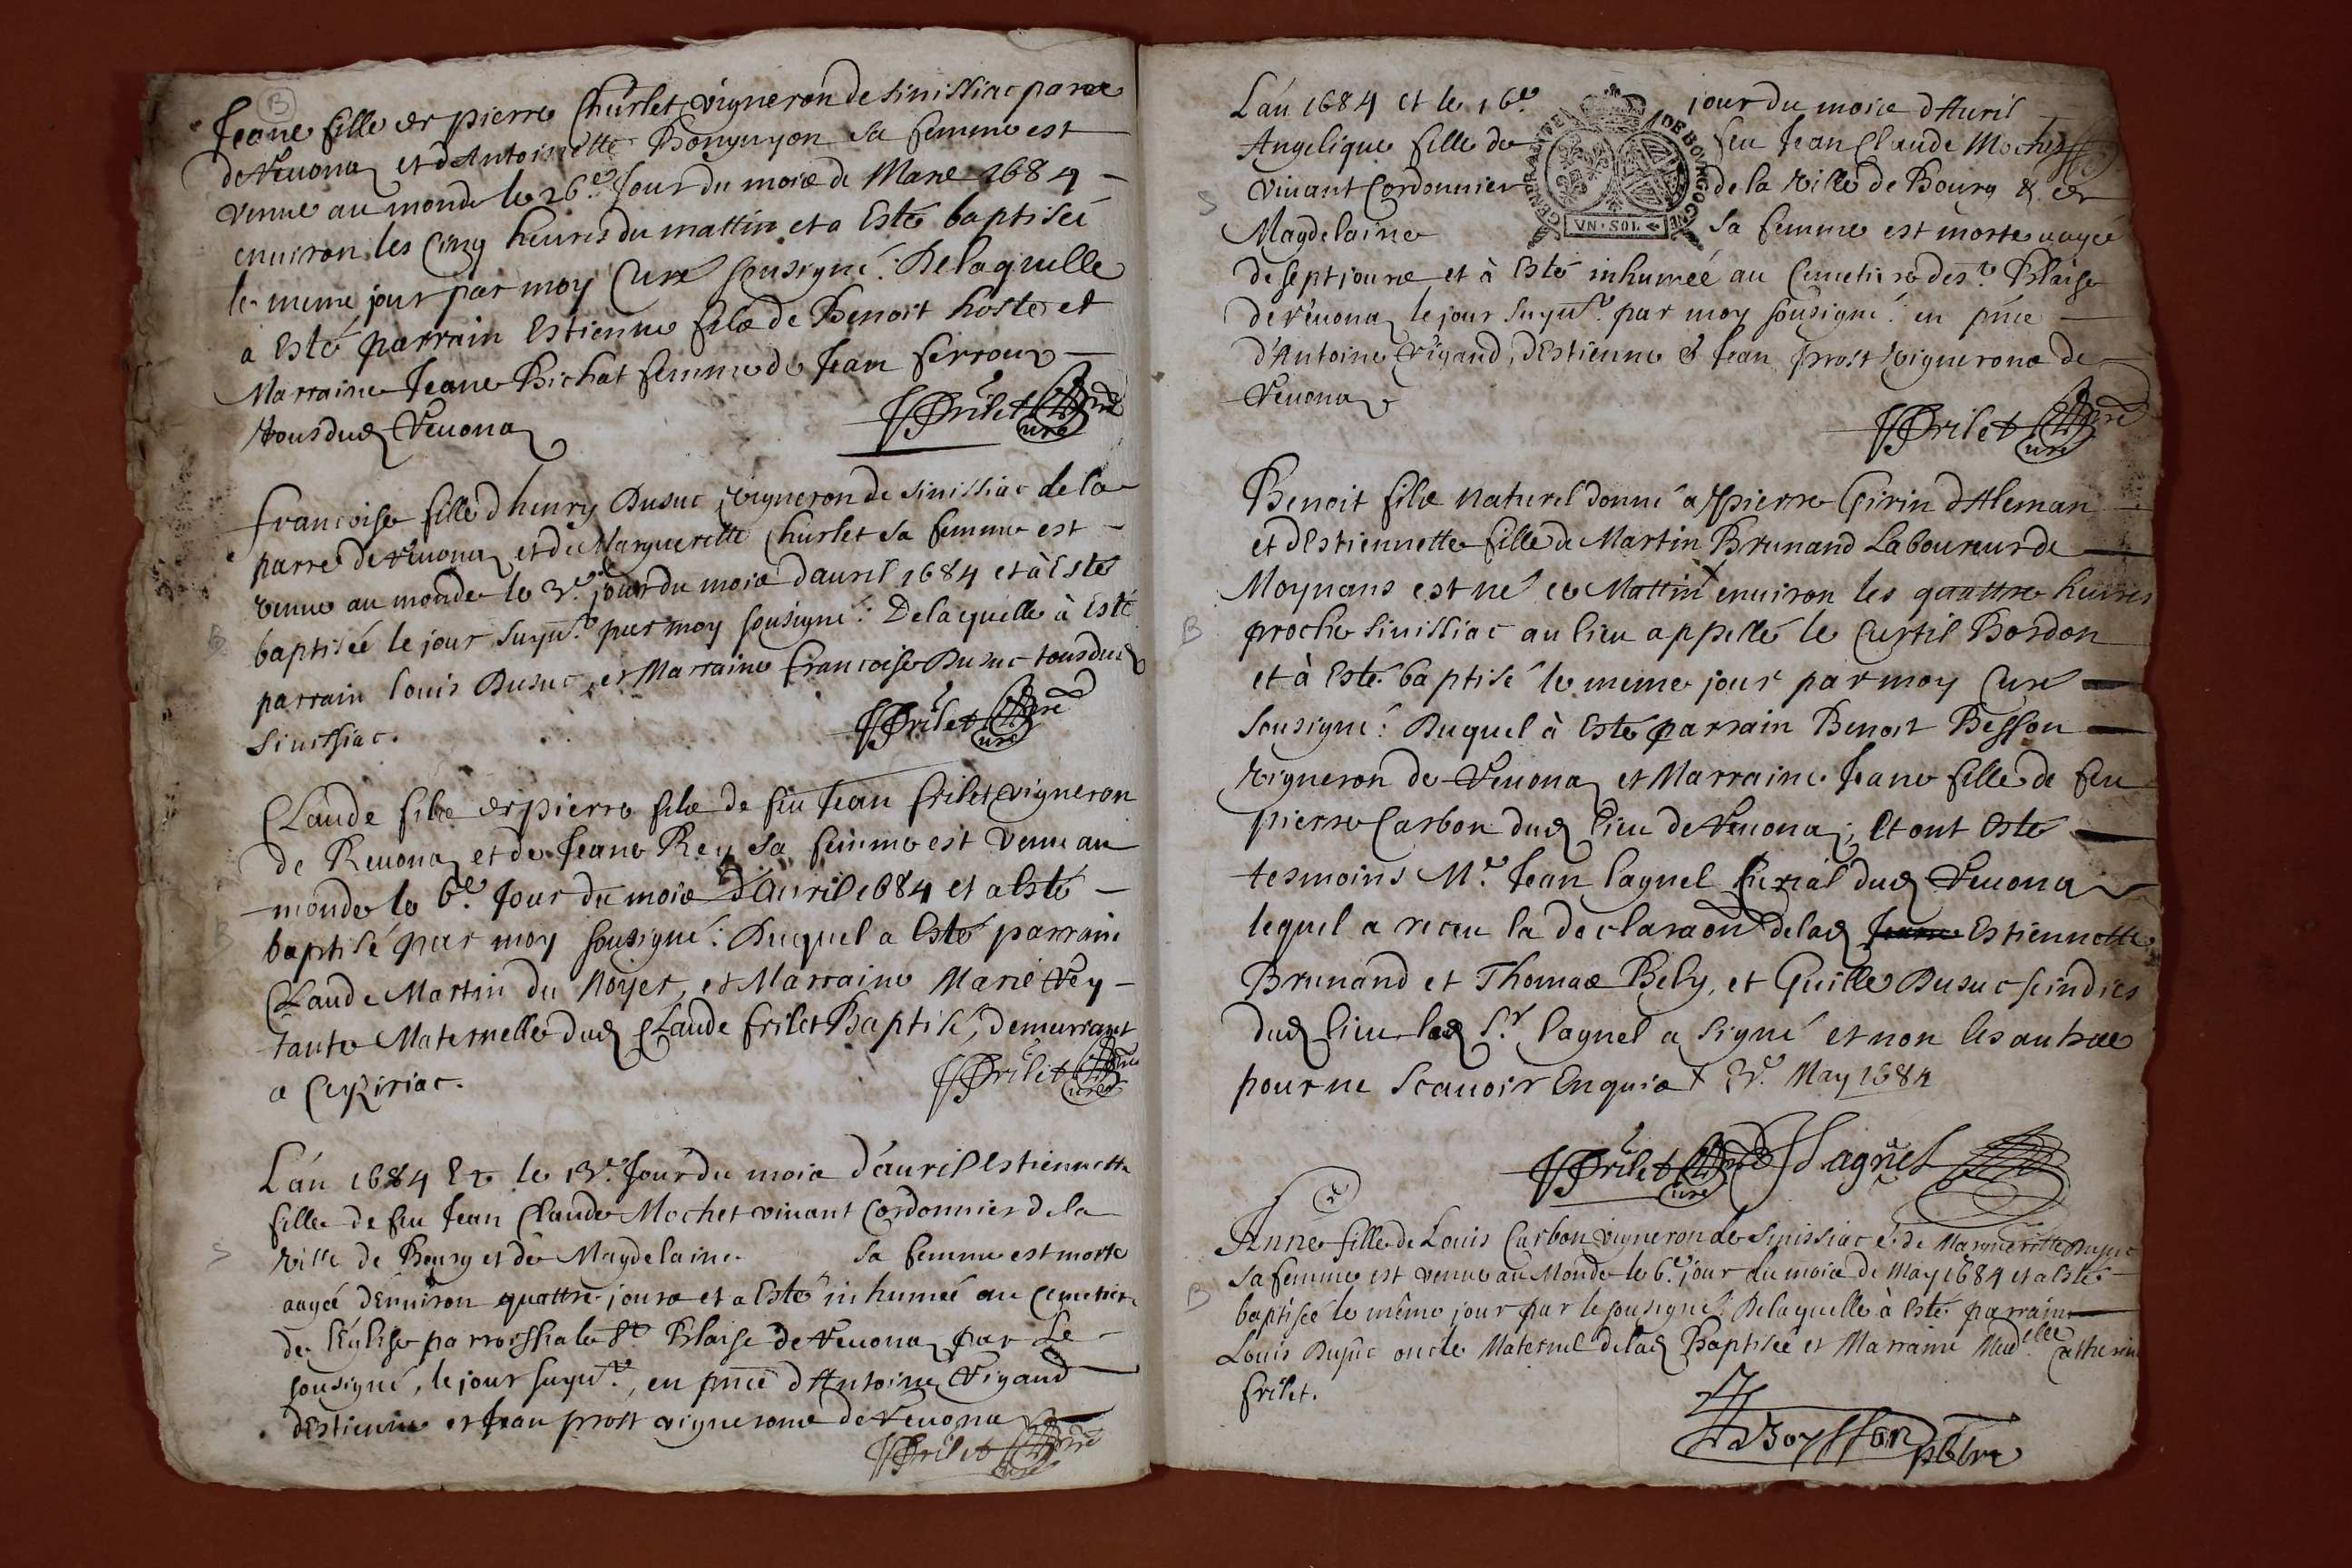 B
Jeane fille de pierre Churlet vigneron de Sinissiac parre
de Reuona et d'Antoinette Bonguyon sa femme est
venue au monde le 26e. Jour du mois de Mars 1684
enuiron les Cinq heures du mattin et a Esté baptiséé
le meme jour par moy Curé sousigné: De laquelle
a Esté parrain Estienne fils de Benoit hoste et
Marraine Jeane Bichat femme de Jean ferroux
tous dud Reuona
FFrilet pre
Curé
francoise fille d'henry Dusuc vigneron de Sinissiac de la
parre de Reuona et de Marguerette Churlet sa femme est
venue au monde le 3e. jour du mois dauril 1684 et à Esté
B
baptiséé le jour Suyut. par moy sousigné: De laquelle à Esté
parrain louis Dusuc, et Marraine francoise Dusuc tous dud
Sinissiac.
FFrilet pre
Curé
Claude fils de pierre fils de feu Jean frilet vigneron
de Reuona et de Jeane Rey sa femme est venu au
monde le 6e. Jour du mois d'Auril 1684 et a Esté
B
baptisé par moy sousigné: Duquel a Esté parrain
Claude Martin du Noyer, et Marraine Marie Rey
tante Maternelle dud Claude frilet Baptisé, demeurant
a Ceyziriac.
FFrilet pre
Curé
L'an 1684 Et le 13e. Jour du mois d'auril Estiennette
fille de feu Jean Claude Mochet viuant Cordonnier de la
S
ville de Bourg et de Magdelaine sa femme est morte
aagéé d'enuiron quattre jours et a Esté inhuméé au Cemetiere
de l'Eglise parroissiale St Blaise de Reuona par Le
sousigné, le jour suyut., en pnce d'Antoine Vigand
d'Estienne et Jean prost vignerons de Reuona
FFrilet pre
Curé
L'an 1684 et le 16e. jour du mois d'Auril
Angelique fille de feu Jean Claude Mochet
GENERALITE DE BOVRGOGNE
VN·SOL
S
viuant Cordonnier de la ville de Bourg & de
Magdelaine sa femme est morte aagéé
de sept jours et à Esté inhuméé au Cemetiere de St. Blaise
de Reuona le jour Suyut. par moy sousigné: en pnce
d'Antoine Vigand, d'Estienne & Jean prost vignerons de
Reuona
FFrilet pre
Curé
Benoit fils naturel donné a pierre Girin d'Aleman
et d'Estiennette fille de Martin Brunand Laboureur de
Moynans est né ce Mattin + enuiron les quattre heures
B
proche Sinissiac au lieu appellé le Curtil Bordon
et à Esté baptisé le meme jour par moy Curé
sousigné: Duquel à Esté parrain Benoit Besson
vigneron de Reuona et Marraine Jeane fille de feu
pierre Carbon dud lieu de Reuona; Et ont Esté
tesmoins Me. Jean lagnel Curial dud Reuona
lequel a receu la declaraon de lad Jeane Estiennette
Brunand et Thomas Bely, et Guille Dusuc scindics
dud lieu led Sr. lagnel a signé et non les autres
pour ne Scauoir Enquis + 3e. May 1684
FFrilet pre
Curé
J Lagnel
Anne fille de Louis Carbon vigneron de Sinissiac & de Margueritte Dusuc
sa femme est venue au Monde le 6e. jour du mois de May 1684 et a Esté
B
baptiséé le même jour par le sousigné: De laquelle à Esté parrain
Louis Dusuc oncle Maternel de lad Baptiséé et Marraine Madelle Catherine
frilet.
Boysson pbtre